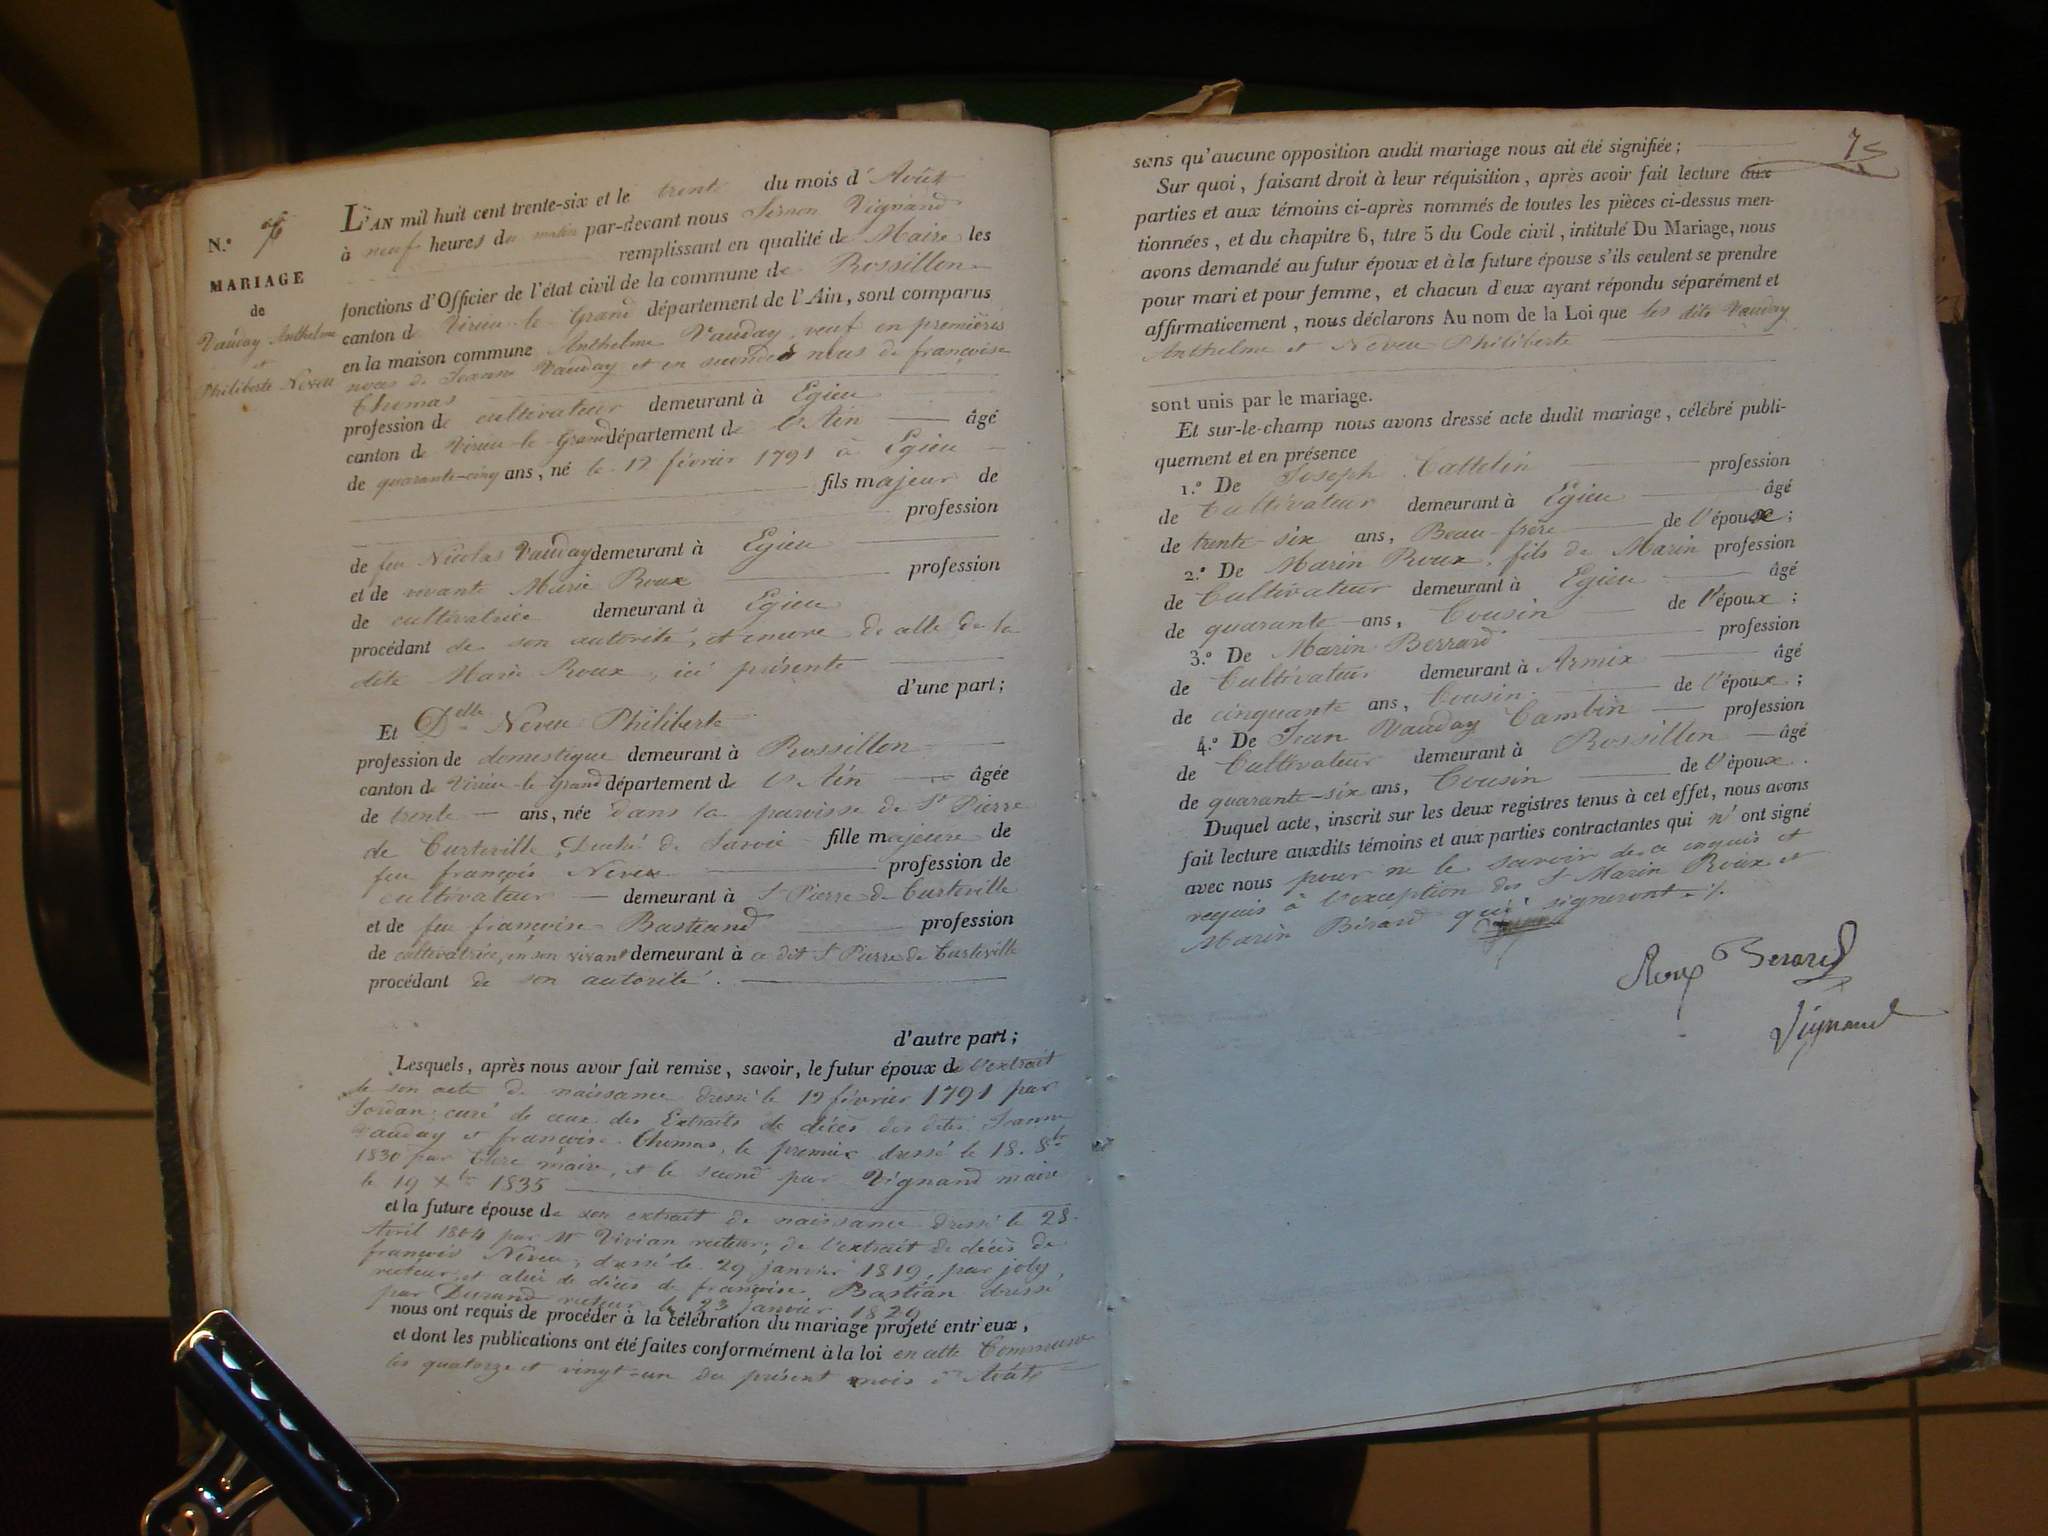 N.º
MARIAGE
de
Vauday Anthelme
et
Philiberte Neveu
L'AN mil huit cent trente-six et le trente du mois d'Août
à neuf heures du matin par-devant nous Vignand
remplissant en qualité de Maire les
fonctions d'Officier de l'état civil de la commune de Rossillon
canton de Virieu-le-Grand département de l'Ain, sont comparus
en la maison commune Anthelme Vauday, veuf en premières
noces de Jeanne Vauday et en secondes noces de françoise
Thomas
profession de cultivateur demeurant à Egieu
canton de Virieu-le-Grand département de l'Ain âgé
de quarante-cinq ans, né le 12 février 1791 à Egieu
fils majeur de
profession
de feu Nicolas Vauday demeurant à Egieu
et de vivante Marie Roux profession
de cultivatrice demeurant à Egieu
procédant de son autorité, et encore de celle de la
dite Marie Roux, ici présente
d'une part;
Et Delle Neveu Philiberte
profession de domestique demeurant à Rossillon
canton de Virieu-le-Grand département de l'Ain âgée
de trente ans, née dans la paroisse de St Pierre
de Curteville, Duché de Savoie fille majeure de
feu françois Neveu profession de
cultivateur demeurant à St Pierre de Curteville
et de feu françoise Bastiand profession
de cultivatrice, en son vivant demeurant à ce dit St Pierre de Curteville
procédant de son autorité.
d'autre part;
Lesquels, après nous avoir fait remise, savoir, le futur époux de l'extrait
de son acte de naissance dressé le 12 février 1791 par
Jordan curé de ceux des Extraits de décès des dites Jeanne
Vauday et françoise Thomas, le premier dressé le 18. 8bre
1830 par maire, et le second par Vignand maire
le 19 Xbre 1835
et la future épouse de son extrait de naissance dressé le 28
Avril 1804 par Mr Vivian recteur; de l'extrait de décès de
françois Neveu, dressé le 29 janvier 1819, par joly,
recteur, et celui de décès de françoise Bastian dressé
par Durand recteur le 23 janvier 1829
nous ont requis de procéder à la célébration du mariage projeté entr'eux,
et dont les publications ont été faites conformément à la loi en cette Commune
les quatorze et vingt-un du présent mois d'Août
sans qu'aucune opposition audit mariage nous ait été signifiée;
Sur quoi, faisant droit à leur réquisition, après avoir fait lecture aux
parties et aux témoins ci-après nommés de toutes les pièces ci-dessus men-
tionnées, et du chapitre 6, titre 5 du Code civil, intitulé Du Mariage, nous
avons demandé au futur époux et à la future épouse s'ils veulent se prendre
pour mari et pour femme, et chacun d'eux ayant répondu séparément et
affirmativement, nous déclarons Au nom de la Loi que les dits Vauday
Anthelme et Neveu Philiberte
sont unis par le mariage.
Et sur-le-champ nous avons dressé acte dudit mariage, célébré publi-
quement et en présence
1.º De Joseph Cattelin profession
de Cultivateur demeurant à Egieu âgé
de trente-six ans, Beau-frère de l'époux;
2.º De Marin Roux, fils de Marin profession
de Cultivateur demeurant à Egieu âgé
de quarante ans, Cousin de l'époux;
3.º De Marin Berrard profession
de Cultivateur demeurant à Armix âgé
de cinquante ans, Cousin de l'époux;
4.º De Jean Vauday Cambin profession
de Cultivateur demeurant à Rossillon âgé
de quarante-six ans, Cousin de l'époux.
Duquel acte, inscrit sur les deux registres tenus à cet effet, nous avons
fait lecture auxdits témoins et aux parties contractantes qui n'ont signé
avec nous pour ne le savoir de ce enquis et
requis à l'exception des Srs Marin Roux et
Marin Bérard qui signeront ./.
Roux Berard
Vignand